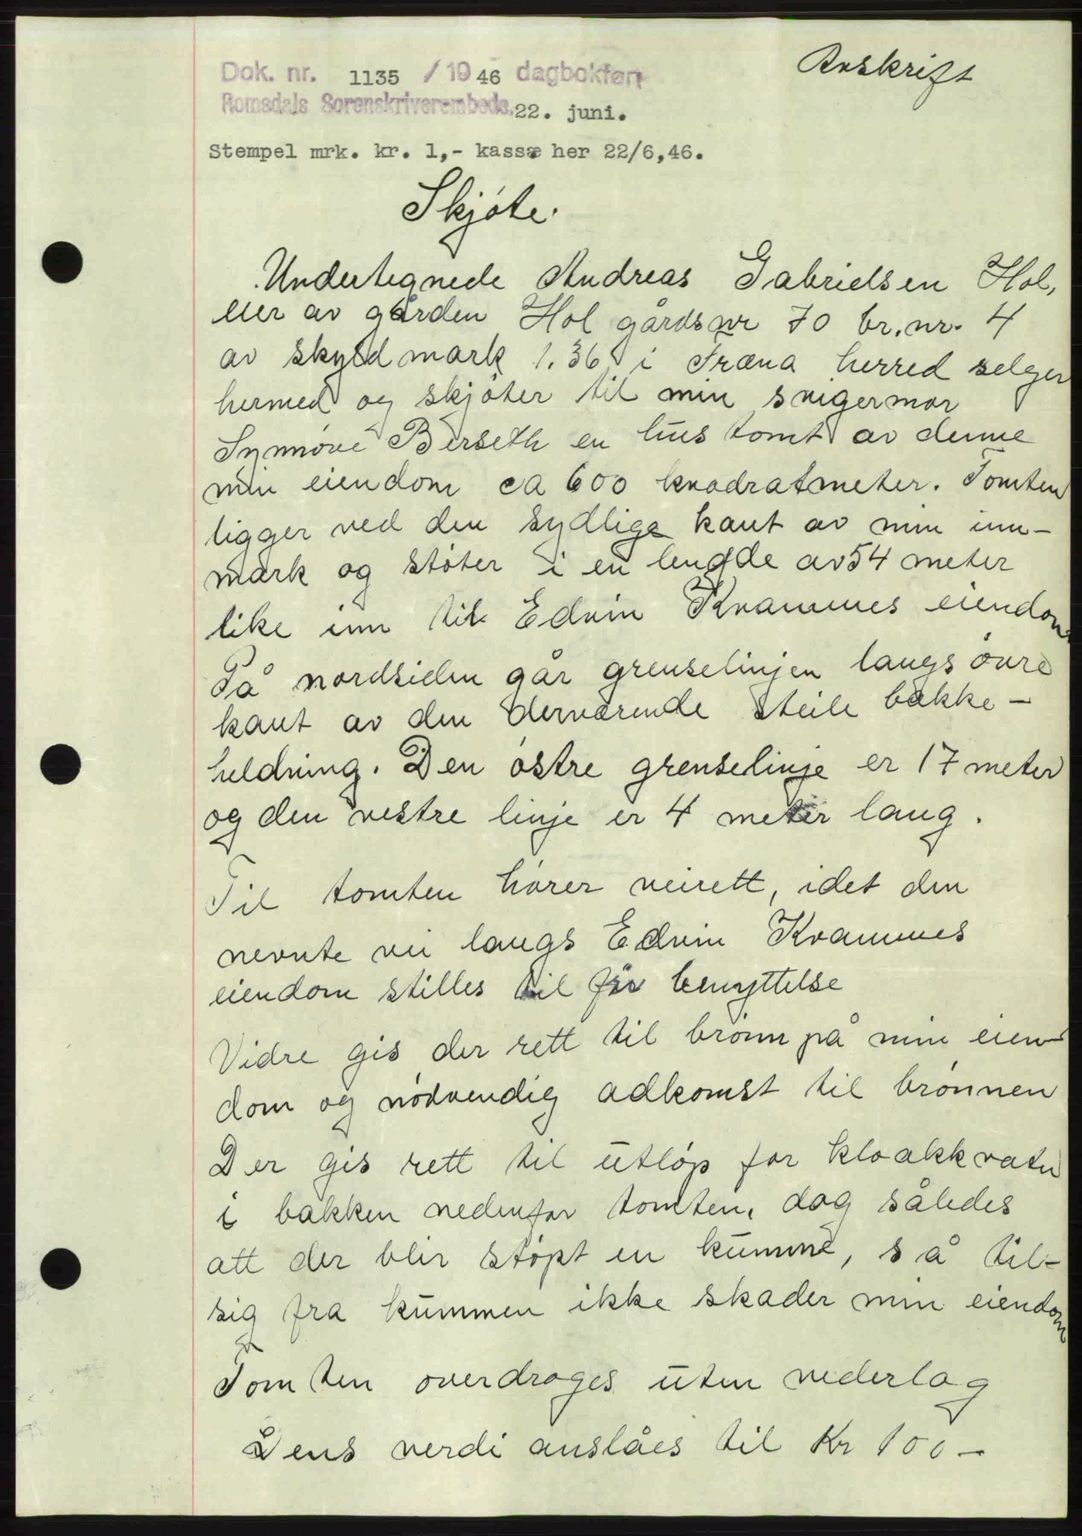 Avskrift
Dok. nr. 1135 / 19 46 dagbokført
Romsdals Sorenskriverembede. 22. juni.
Stempel mrk. kr. 1,- kassæ her 22/6,46.
Skjøte.
Undertegnede Andreas Gabrielsen Hol,
eier av gården Hol gårdsnr 70 br.nr. 4
av skyld mark 1.36 i Fræna herred selger
hermed og skjøter til min svigermor
Synnøve Berseth en hus tomt av denne
min eiendom ca 600 kvadratmeter. Tomten
ligger ved den sydlige kant av min inn-
mark og støter i en lengde av 54 meter
like inn til Edvin Kvammes eiendom
På nordsiden går grenselinjen langs øvre
kant av den derværende steile bakke-
heldning. Den østre grenselinje er 17 meter
og den vestre linje er 4 meter lang.
Til tomten hører veirett, idet den
nevnte vei langs Edvin Kvammes
eiendom stilles til fri benyttelse
Vidre gis der rett til brønn på min eien-
dom og nødvendig adkomst til brønnen
Der gis rett til utløp for kloakkvatn
i bakken nedenfor tomten, dog således
att der blir støpt en kumme, så til-
sig fra kummen ikke skader min eiendom
Tomten overdrages uten vederlag
Dens verdi anslåes til Kr 100-